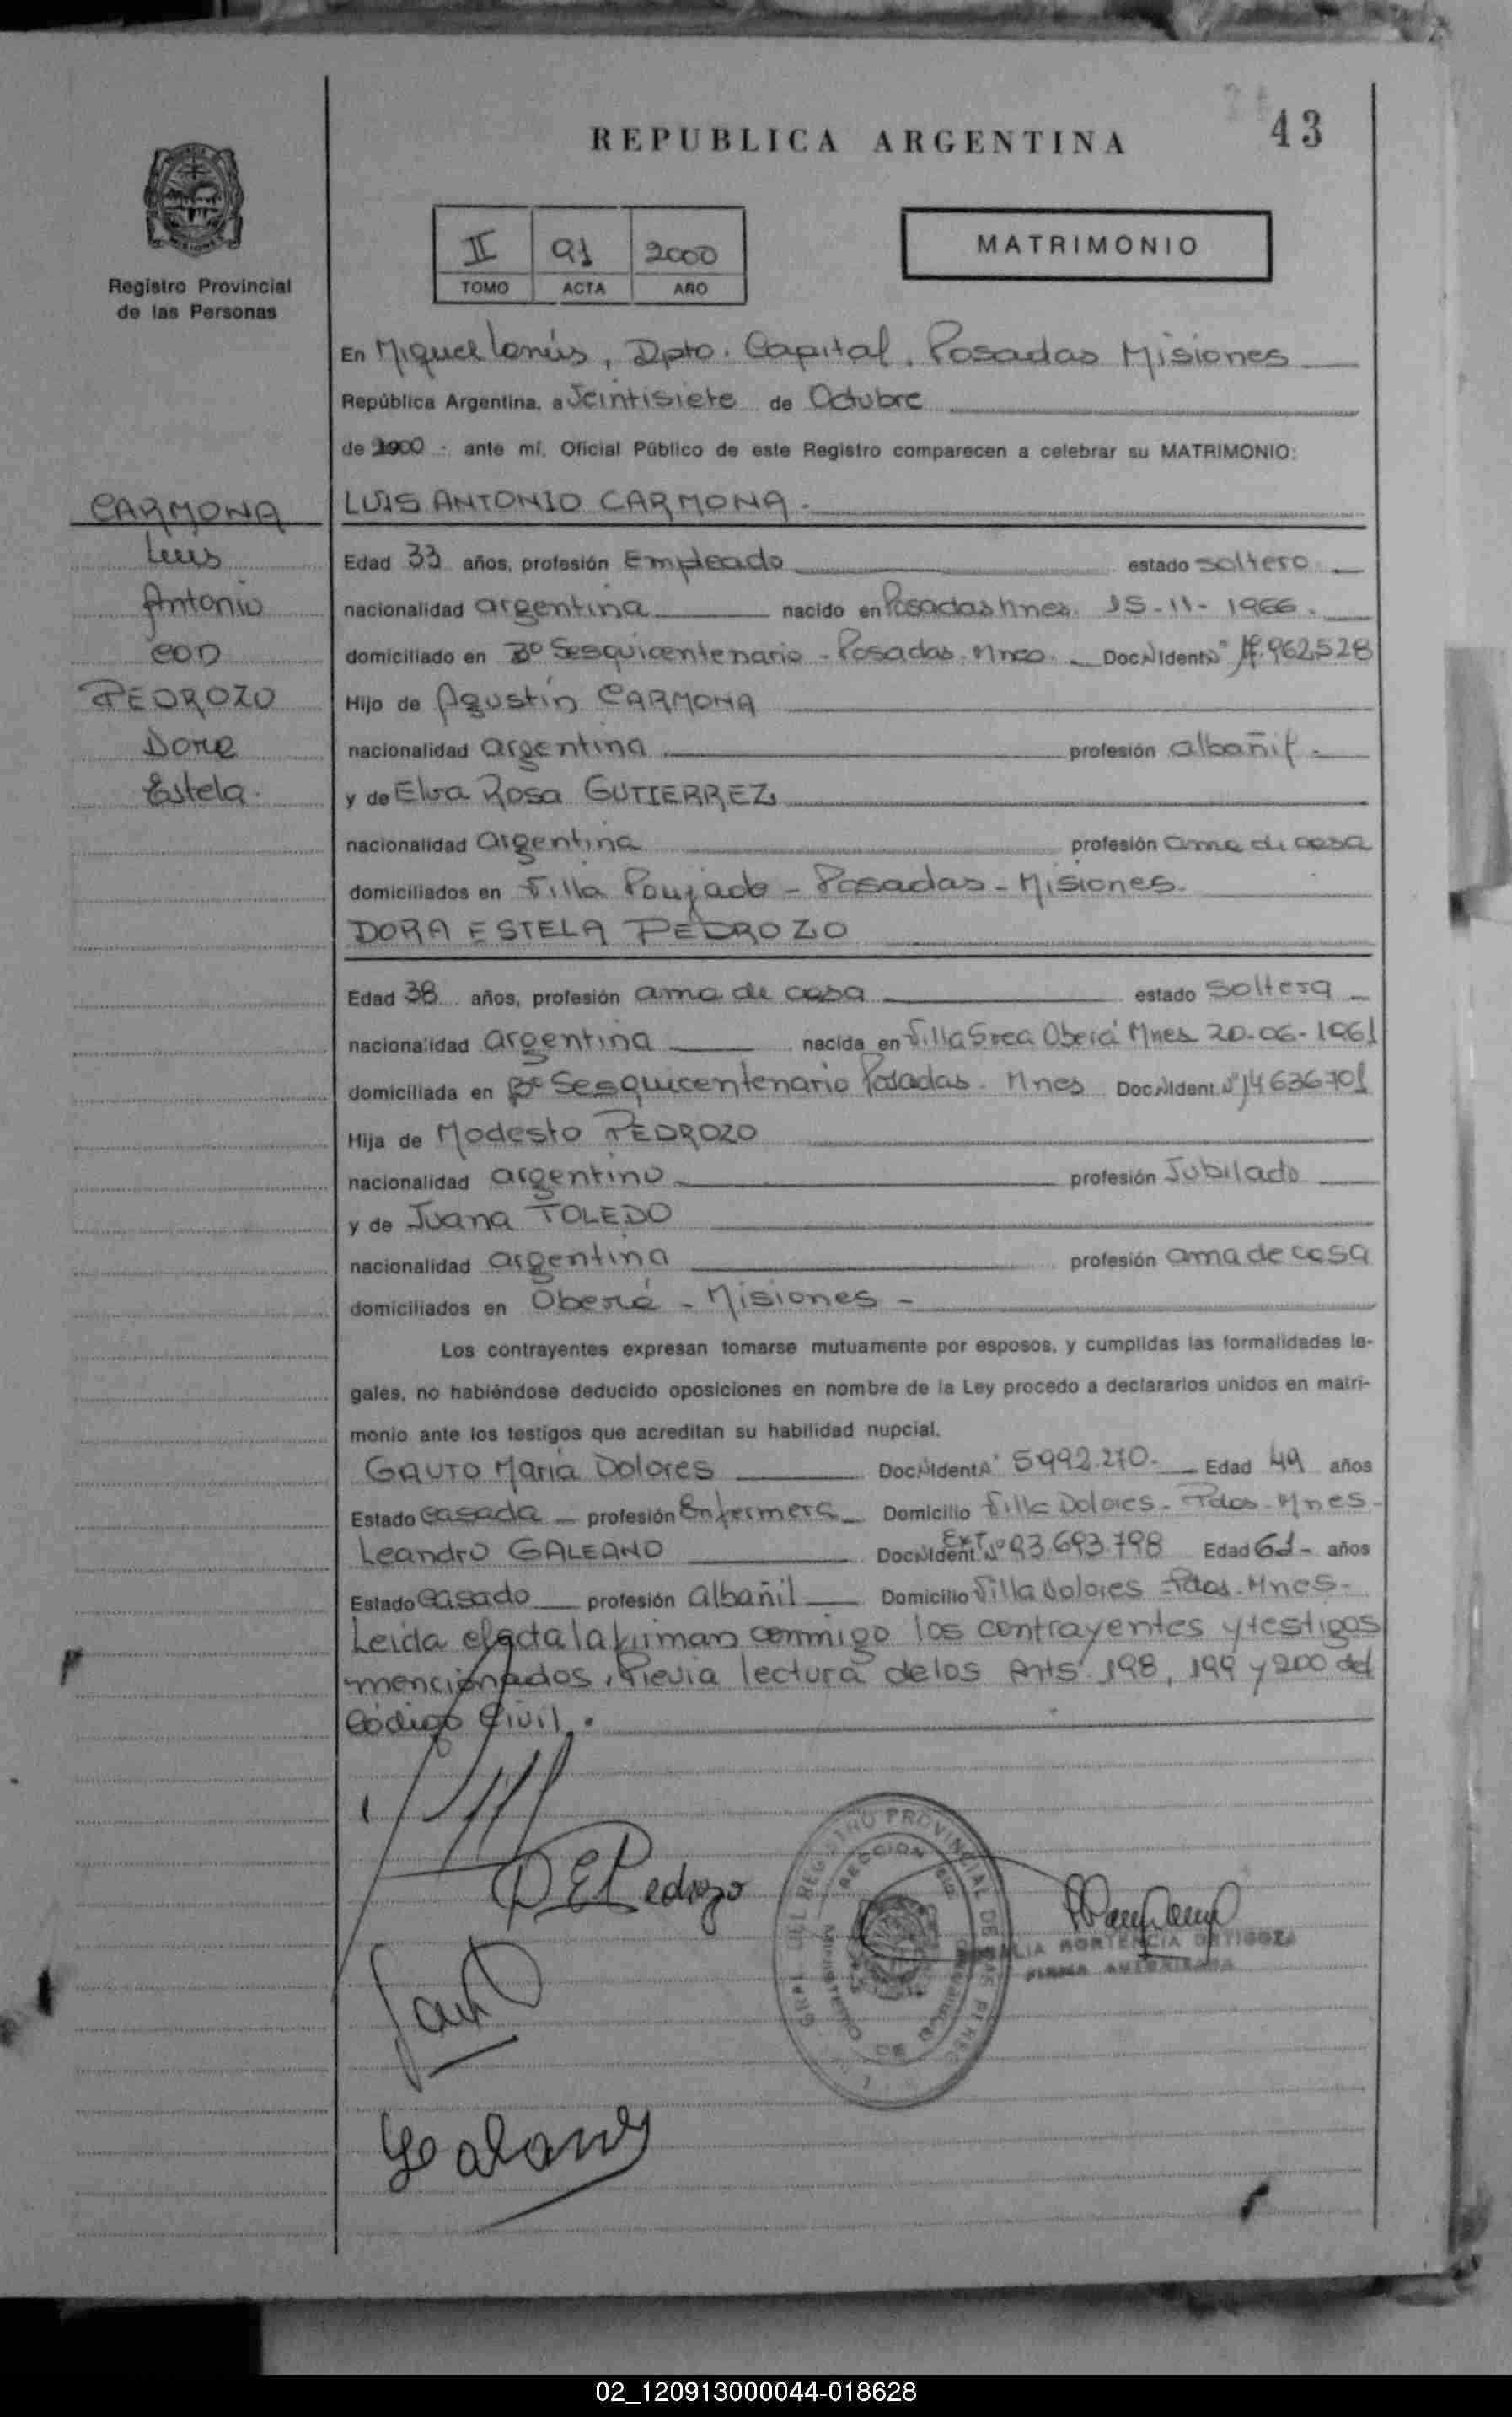 43
REPUBLICA ARGENTINA
II 91 2000
TOMO ACTA AÑO
MATRIMONIO
Registro Provincial
de las Personas
En Miguel Lanús, Dpto. Capital. Posadas Misiones
República Argentina, a Veintisiete de Octubre
de 2000 - ante mí, Oficial Público de este Registro comparecen a celebrar su MATRIMONIO:
CARMONA
Luis
Antonio
con
PEDROZO
Dora
Estela.
LUIS ANTONIO CARMONA.
Edad 33 años, profesión Empleado estado soltero
nacionalidad argentina nacido en Posadas Mnes. 15-11-1966.
domiciliado en Bº Sesquicentenario - Posadas. Mnes. Doc. Ident. Nº 962.528
Hijo de Agustín CARMONA
nacionalidad argentina profesión albañil.
y de Elva Rosa GUTIERREZ
nacionalidad argentina profesión ama de casa
domiciliados en Villa Poujade - Posadas - Misiones.
DORA ESTELA PEDROZO
Edad 38 años, profesión ama de casa estado Soltera
nacionalidad argentina nacida en Villa Svea Oberá Mnes 20-06-1961
domiciliada en Bº Sesquicentenario Posadas - Mnes Doc. Ident. Nº 14636701
Hija de Modesto PEDROZO
nacionalidad argentino profesión Jubilado
y de Juana TOLEDO
nacionalidad argentina profesión ama de casa
domiciliados en Oberá - Misiones -
Los contrayentes expresan tomarse mutuamente por esposos, y cumplidas las formalidades le-
gales, no habiéndose deducido oposiciones en nombre de la Ley procedo a declararlos unidos en matri-
monio ante los testigos que acreditan su habilidad nupcial.
GAUTO María Dolores Doc. Ident. Nº 5992.270.- Edad 49 años
Estado casada - profesión Enfermera Domicilio Villa Dolores - Pdas - Mnes -
Leandro GALEANO Doc. Ident. Ext. Nº 93.693.798 Edad 61- años
Estado Casado profesión albañil Domicilio Villa Dolores - Pdas - Mnes -
Leída el acta la firman conmigo los contrayentes y testigos
mencionados, Previa lectura de los Arts. 198, 199 y 200 del
Código Civil.
D E Pedrozo
REGISTRO PROVINCIAL DE
SECCION
MINISTERIO DE
HORTENCIA ORTIGOZA
FIRMA AUTORIZADA
Gauto
Galeano
02_120913000044-018628